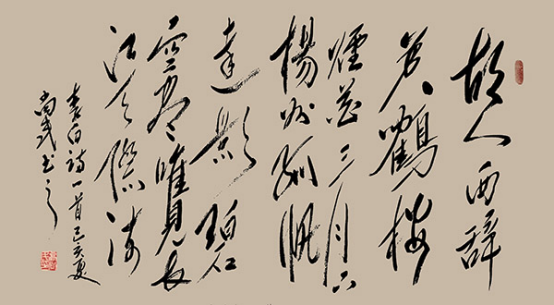 故人西辞
黄鶴楼
煙花三月下
楊州孤帆
遠影碧
空尽唯見长
江天際流
李白詩一首己亥夏
尚武书之